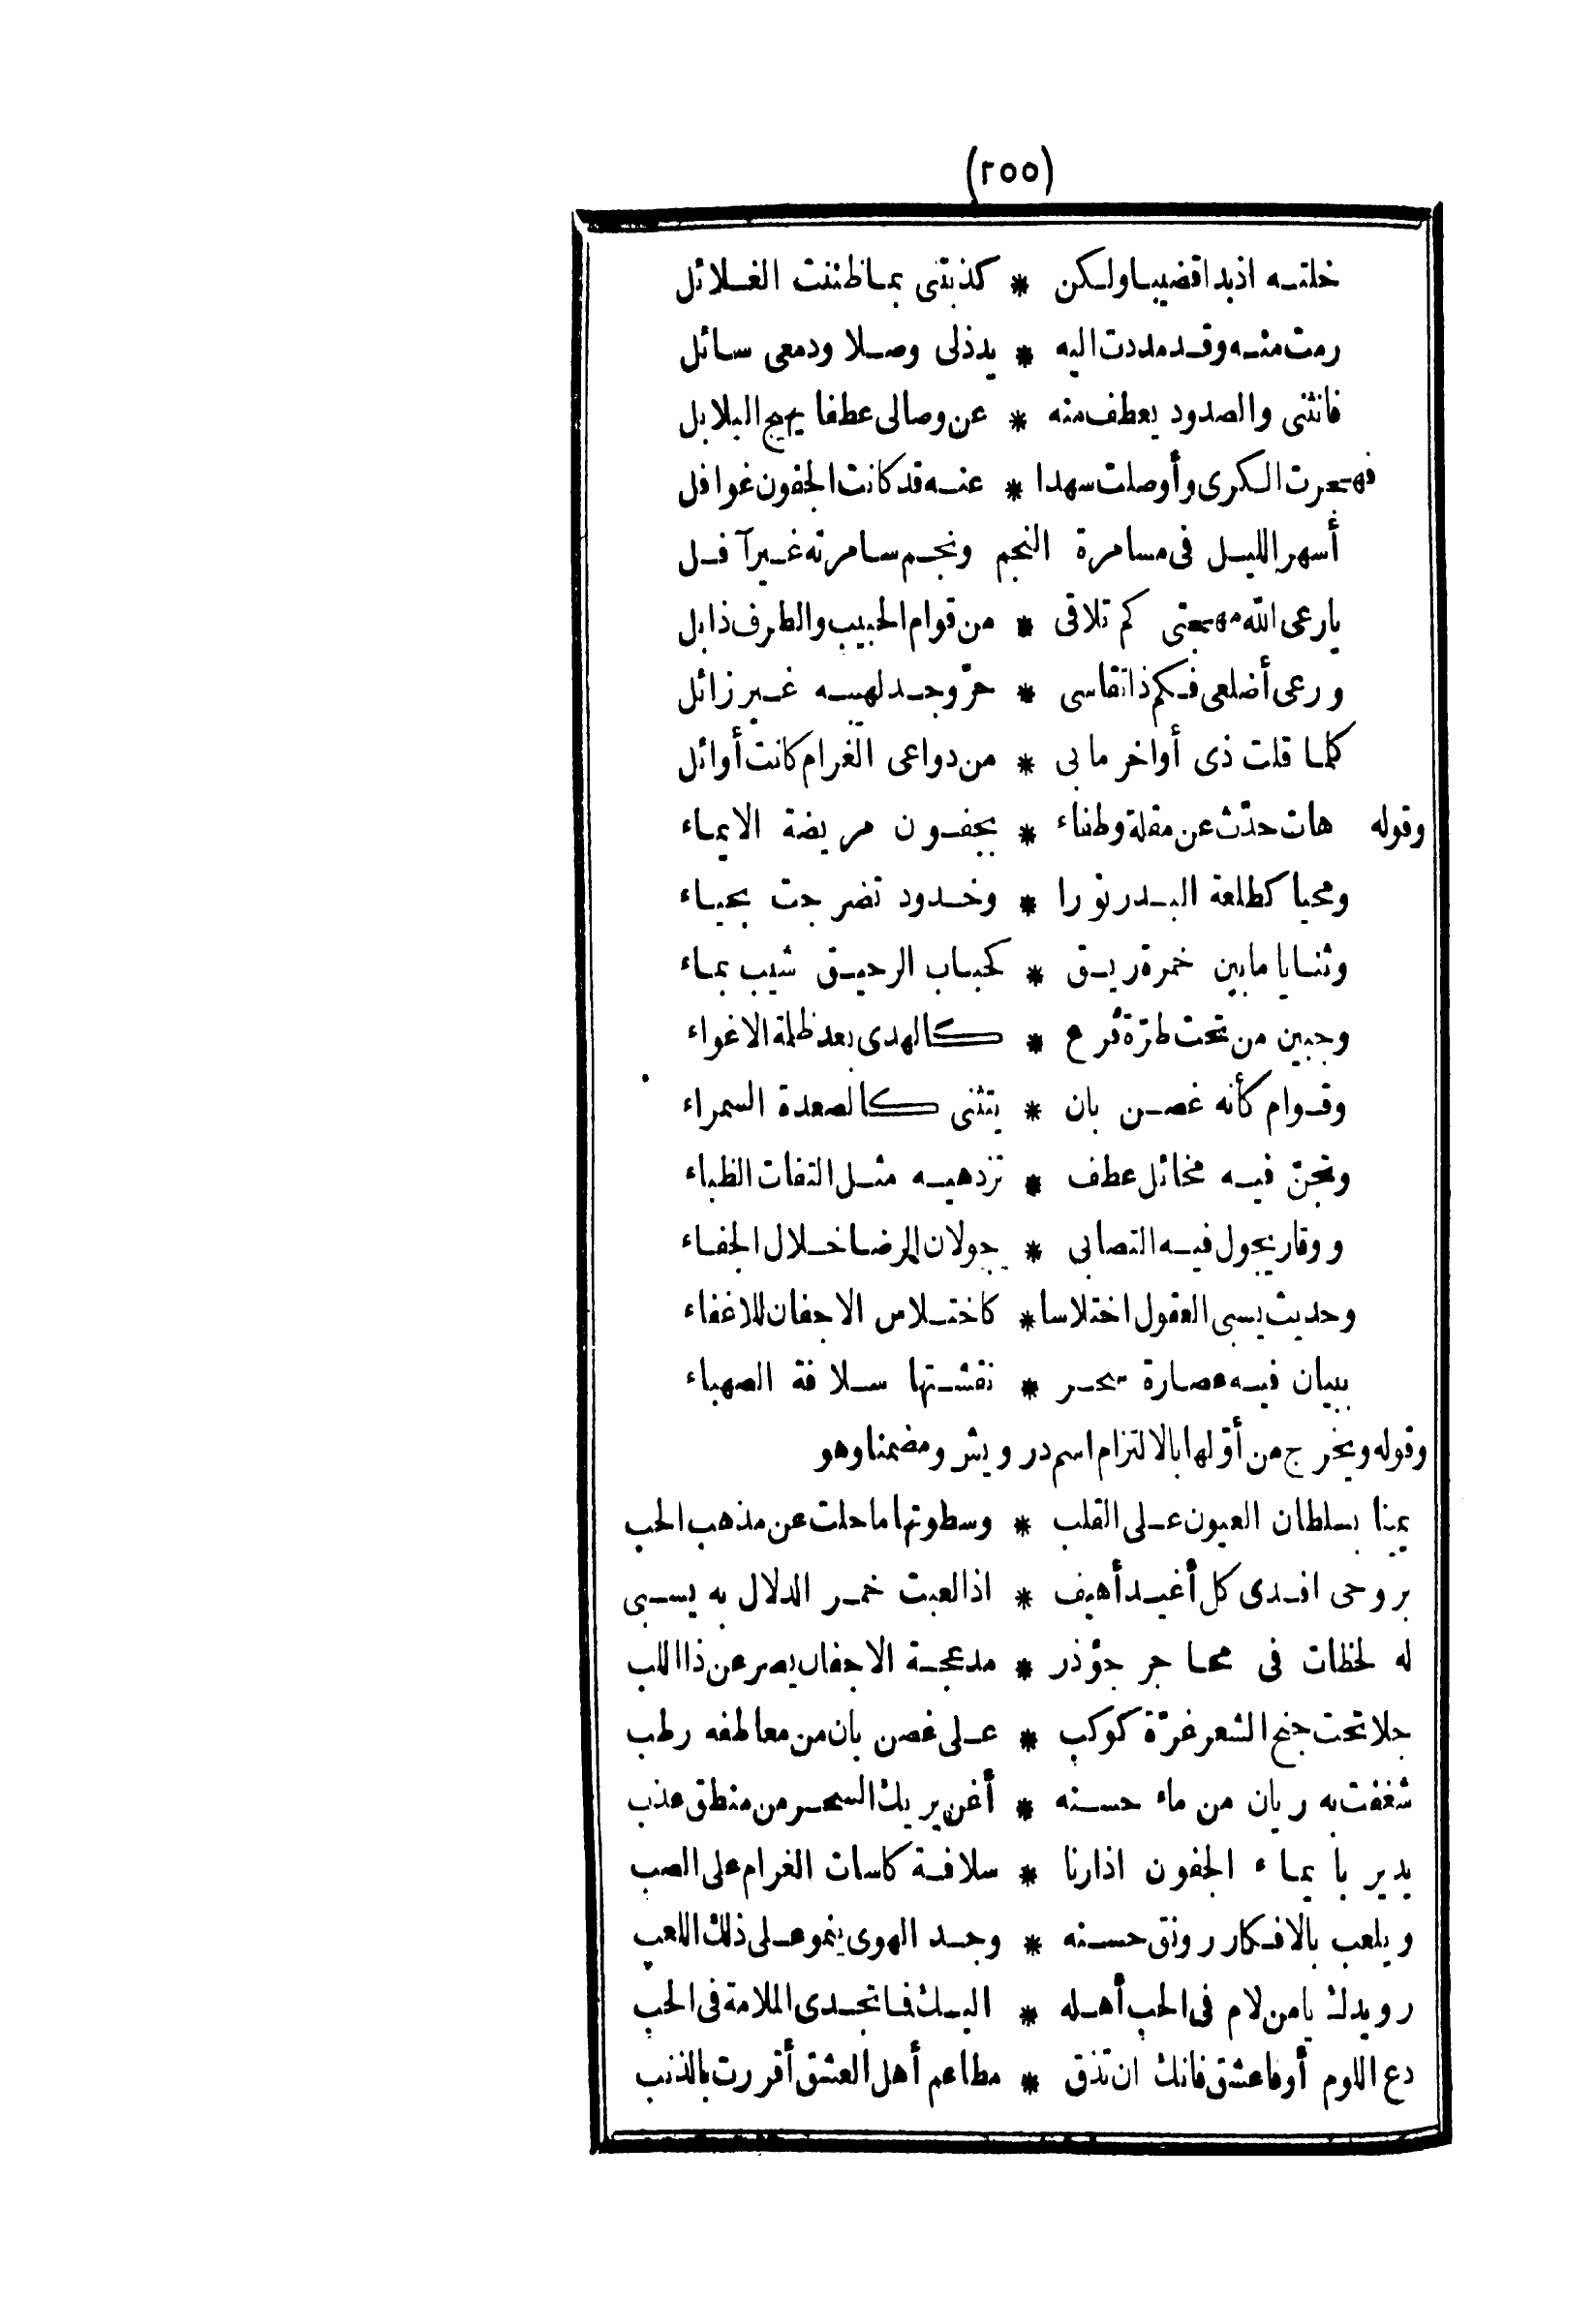 (٢٥٥)
خلته اذبدا قضيبا ولكن * كذبتنى بما ظننت الغلائل
رمت منه وقد مددت اليه * يد ذلى وصلا ودمعى سائل
فانثنى والصدود يعطف منه * عن وصالى عطفا يهيج البلابل
فهجرت الكرى وأوصلت سهدا * عنه قد كانت الجفون غوافل
أسهر الليل فى مسامرة النجم ونجم سامرته غير آفل
يارعى الله مهجتى كم تلاقى * من قوام الحبيب والطرف ذابل
ورعى أضلعى فكم ذا تقاسى * حرّ وجد لهيبه غير زائل
كلما قلت ذى أواخر مابى * من دواعى الغرام كانت أوائل
وقوله هات حدّث عن مقلة وطفاء * بجفون مريضة الايماء
ومحيا كطلعة البدر نورا * وخدود تضرجت بحياء
وثنايا مابين خمرة ريق * كحباب الرحيق شيب بماء
وجبين من تحت طرّة فرع * كالهدى بعد ظلمة الاغواء
وقوام كأنه غصن بان * يتثنى كالصعدة السمراء
وتجنّ فيه مخائل عطف * تزدهيه مثل التفات الظباء
ووقار يجول فيه التصابى * جولان الرضا خلال الجفاء
وحديث يسبى العقول اختلاسا * كاختلاس الاجفان للاغفاء
ببيان فيه عصارة سحر * نقشتها سلافة الصهباء
وقوله ويخرج من أوّلها بالالتزام اسم درويش ومضمنا وهو
يمينا بسلطان العيون على القلب * وسطوتها ما حلت عن مذهب الحب
بروحى افدى كل أغيد أهيف * اذا لعبت خمر الدلال به يسبى
له لحظات فى محاجر جؤذر * مدعجة الاجفان يصرعن ذا اللب
جلا تحت جنح الشعر غرّة كوكب * على غصن بان من معاطفه رطب
شغفت به ريان من ماء حسنه * أغن يريك السحر من منطق عذب
يدير بايماء الجفون اذا رنا * سلافة كاسات الغرام على الصب
ويلعب بالافكار رونق حسنه * وجد الهوى ينمو على ذلك اللعب
رويدك يا من لام فى الحب أهله * اليك فما تجدى الملامة فى الحب
دع اللوم أوفاعشق فانك ان تذق * مطاعم أهل العشق أقررت بالذنب